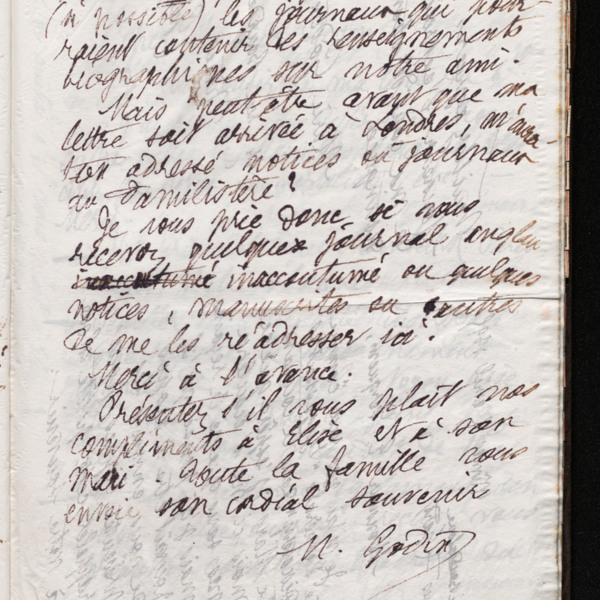 (si possible) les journaux qui pour-
raient contenir des renseignements
biographiques sur notre ami.
Mais peut-être avant que ma
lettre soit arrivée à Londres, m'aura-
t-on adressé notices ou journaux
au Familistère ?
Je vous prie donc, si vous
recevez quelques journal anglais
inaccoutumé ou quelques
notices, manuscrites ou autres
de me les réadresser ici.
Merci à l'avance.
Présentez s'il vous plaît nos
compliments à Elise et à son
mari. Toute la famille vous
envoie son cordial souvenir
M. Godin